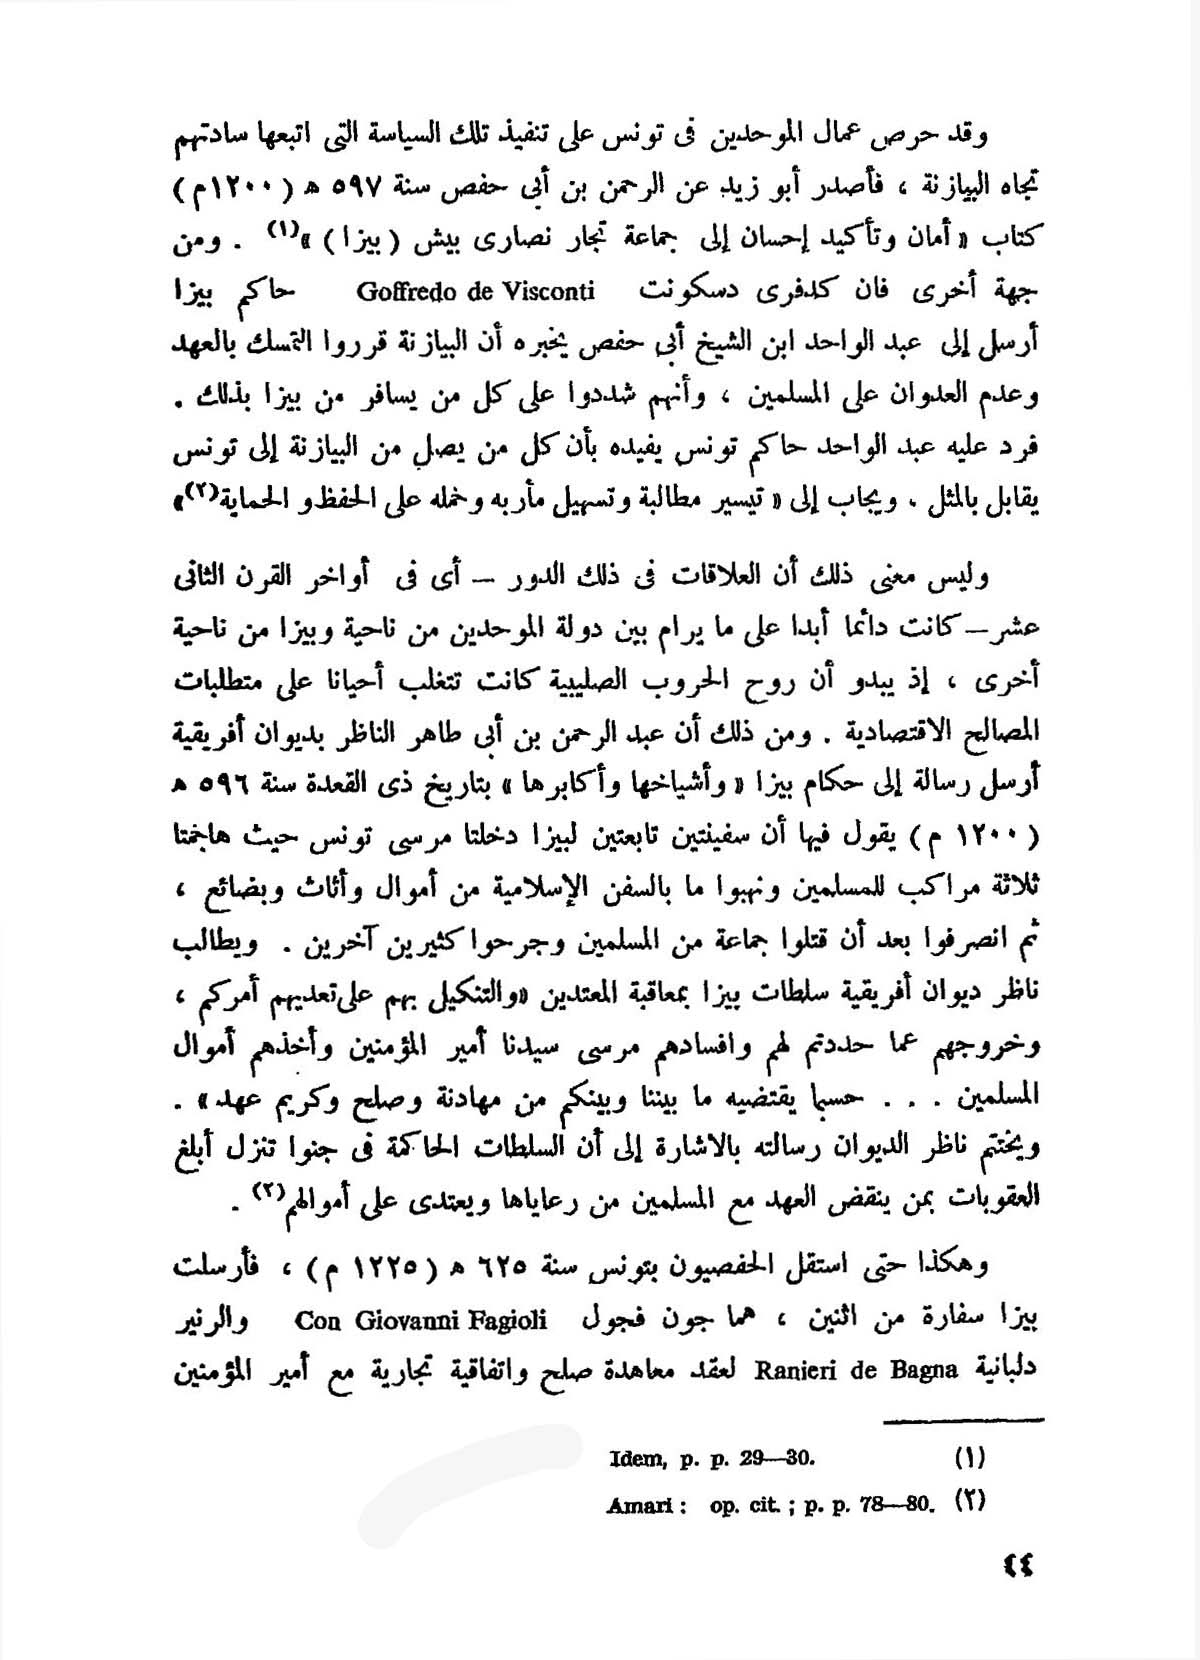 وقد حرص عمال الموحدين فى تونس على تنفيذ تلك السياسة التى اتبعها سادتهم
تجاه البيازنة ، فأصدر أبو زيد عن الرحمن بن أبى حفص سنة ٥٩٧ ه (١٢٠٠م)
كتاب « أمان وتأكيد إحسان إلى جماعة تجار نصارى بيش (بيزا) »(١) . ومن
جهة أخرى فان كدفرى دسكونت Goffredo de Visconti حاكم بيزا
أرسل إلى عبد الواحد ابن الشيخ أبى حفص يخبره أن البيازنة قرروا التمسك بالعهد
وعدم العدوان على المسلمين ، وأنهم شددوا على كل من يسافر من بيزا بذلك .
فرد عليه عبد الواحد حاكم تونس يفيده بأن كل من يصل من البيازنة إلى تونس
يقابل بالمثل . ويجاب إلى « تيسير مطالبة وتسهيل مأربه وخمله على الحفظ و الحماية(٢)»
وليس معنى ذلك أن العلاقات فى ذلك الدور – أى فى أواخر القرن الثانى
عشر – كانت دائما أبدا على ما يرام بين دولة الموحدين من ناحية وبيزا من ناحية
أخرى ، إذ يبدو أن روح الحروب الصليبية كانت تتغلب أحيانا على متطلبات
المصالح الاقتصادية . ومن ذلك أن عبد الرحمن بن أبى طاهر الناظر بديوان أفريقية
أرسل رسالة إلى حكام بيزا « وأشياخها وأكابرها » بتاريخ ذى القعدة سنة ٥٩٦ ه
(١٢٠٠ م) يقول فيها أن سفينتين تابعتين لبيزا دخلتا مرسى تونس حيث هاجمتا
ثلاثة مراكب للمسلمين ونهبوا ما بالسفن الإسلامية من أموال وأثاث وبضائع ،
ثم انصرفوا بعد أن قتلوا جماعة من المسلمين وجرحوا كثيرين آخرين . ويطالب
ناظر ديوان أفريقية سلطات بيزا بمعاقبة المعتدين «والتنكيل بهم على تعديهم أمركم ،
وخروجهم عما حددتم لهم وافسادهم مرسى سيدنا أمير المؤمنين وأخذهم أموال
المسلمين . . . حسبما يقتضيه ما بيننا وبينكم من مهادنة وصلح وكريم عهد» .
ويختتم ناظر الديوان رسالته بالاشارة إلى أن السلطات الحاكمة فى جنوا تنزل أبلغ
العقوبات بمن ينقض العهد مع المسلمين من رعاياها ويعتدى على أموالهم(٢) .
وهكذا حتى استقل الحفصيون بتونس سنة ٦٢٥ ه (١٢٢٥ م) ، فأرسلت
بيزا سفارة من اثنين ، هما جون فجول Con Giovanni Fagioli والرنير
دلبانية Ranieri de Bagna لعقد معاهدة صلح واتفاقية تجارية مع أمير المؤمنين
(١) Idem, p. p. 29—30.
(٢) Amari : op. cit. ; p. p. 78—80.
٤٤